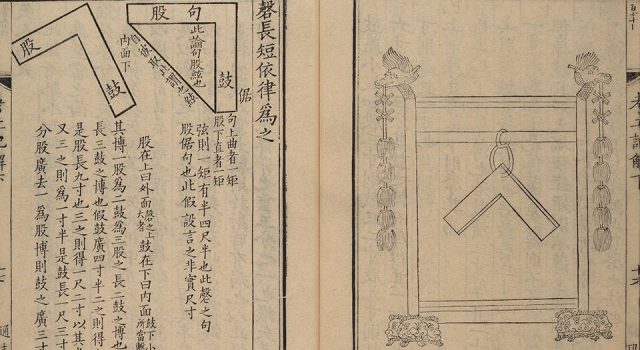 磬長短依律為之
倨
句
股
鼓
此論句股弦也
自彼取此謂之弦
句上曲者一矩
股下直者一矩
弦則一矩有半四尺半也此磬之句
股倨句也此假設言之非實尺寸
股
鼓
内面下
股在上曰外面磬之上大者鼓在下曰内面鼓下小所當擊
其博一股為二鼓為三股之長二鼓之博也
長三鼓之博也假鼓廣四寸半二之則得
是股長九寸也三之則得一尺二寸以其
又三之則為一寸半是鼓長一尺三寸
分股廣去一為股博則鼓之廣三寸
通志